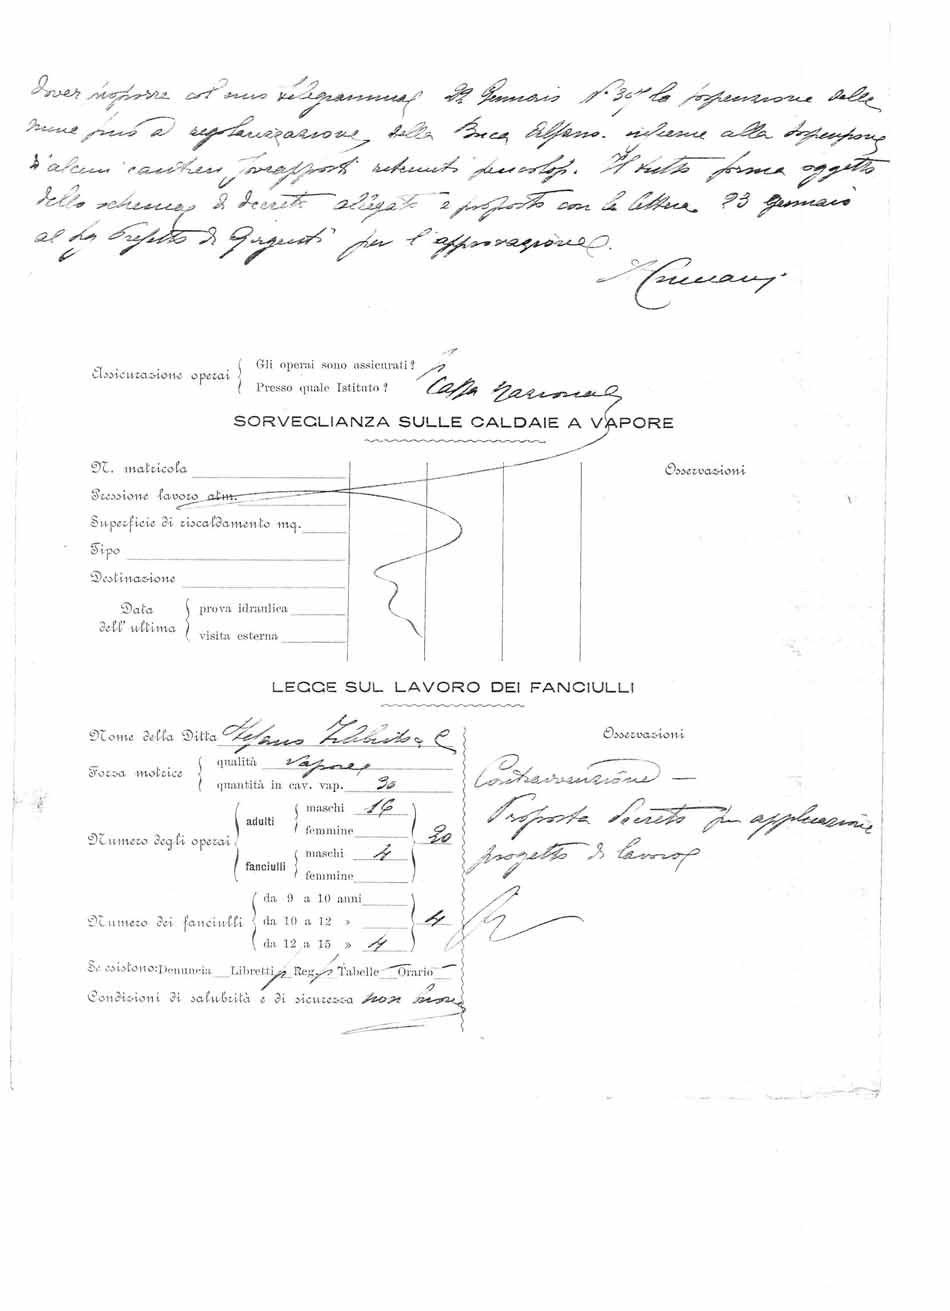 dover disporre col mio telegramma 22 Gennaio N° la sospensione delle
mine fino a regolarizzazione della Buca Alfano. insieme alla sospensione
d'alcuni cantieri sovrapposti ritenuti pericolosi. Il tutto forma oggetto
dello schema di decreto allegato e proposto con la lettera 23 Gennaio
al Sig Prefetto di Girgenti per l'approvazione.
Assicurazione operai
Gli operai sono assicurati?
Presso quale Istituto? Cassa Nazionale
SORVEGLIANZA SULLE CALDAIE A VAPORE
N. matricola
Osservazioni
Pressione lavoro atm.
Superficie di riscaldamento mq.
Tipo
Destinazione
Data dell' ultima
prova idraulica
visita esterna
LEGGE SUL LAVORO DEI FANCIULLI
Nome della Ditta Stefano
Forza motrice
qualità Vapore
quantità in cav. vap. 30
Numero degli operai
adulti
maschi 16
femmine
20
fanciulli
maschi 4
femmine
Numero dei fanciulli
da 9 a 10 anni
da 10 a 12 »
da 12 a 15 » 4
4
Se esistono: Denuncia Libretti Reg. Tabelle Orario
Condizioni di salubrità e di sicurezza non buone
Osservazioni
Contravvenzione —
Proposta Decreto per applicazione
progetto di lavoro